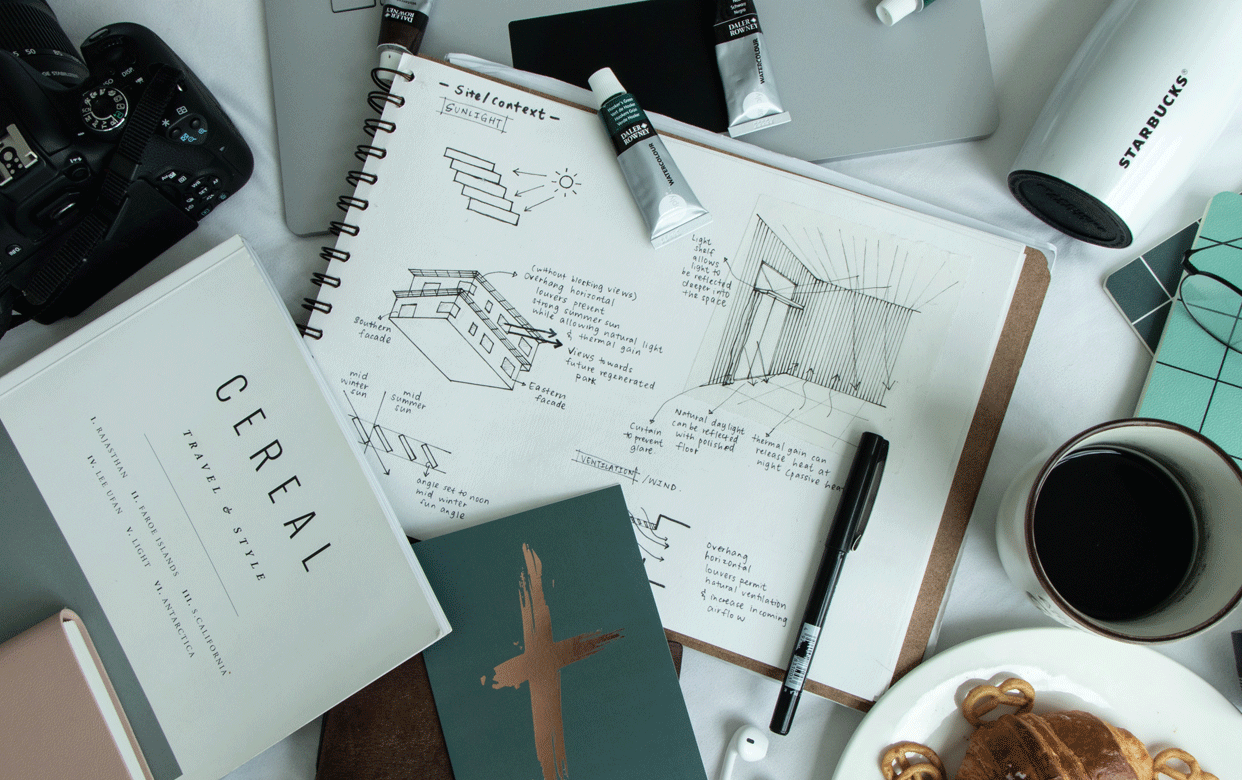 - Site/Context -
SUNLIGHT
(without blocking views)
overhang horizontal
louvers prevent
strong summer sun
while allowing natural light
& thermal gain
Southern
facade
Views towards
future regenerated
park
Eastern
facade
mid
winter
sun
mid
summer
sun
angle set to noon
mid winter
sun angle
light
shelf
allows
light to
be reflected
deeper into
the space
Curtain
to prevent
glare.
Natural daylight
can be reflected
with polished
floor
thermal gain can
release heat at
night (passive
VENTILATION / WIND.
Overhang
horizontal
louvers permit
natural ventilation
& increase incoming
airflow
CEREAL
TRAVEL & STYLE
I. RAJASTHAN II. FAROE ISLANDS III. S.CALIFORNIA
IV. LEE UFAN V. LIGHT VI. ANTARCTICA
DALER
ROWNEY
WATERCOLOUR
DALER
ROWNEY
WATERCOLOUR
DALER
ROWNEY
STARBUCKS®